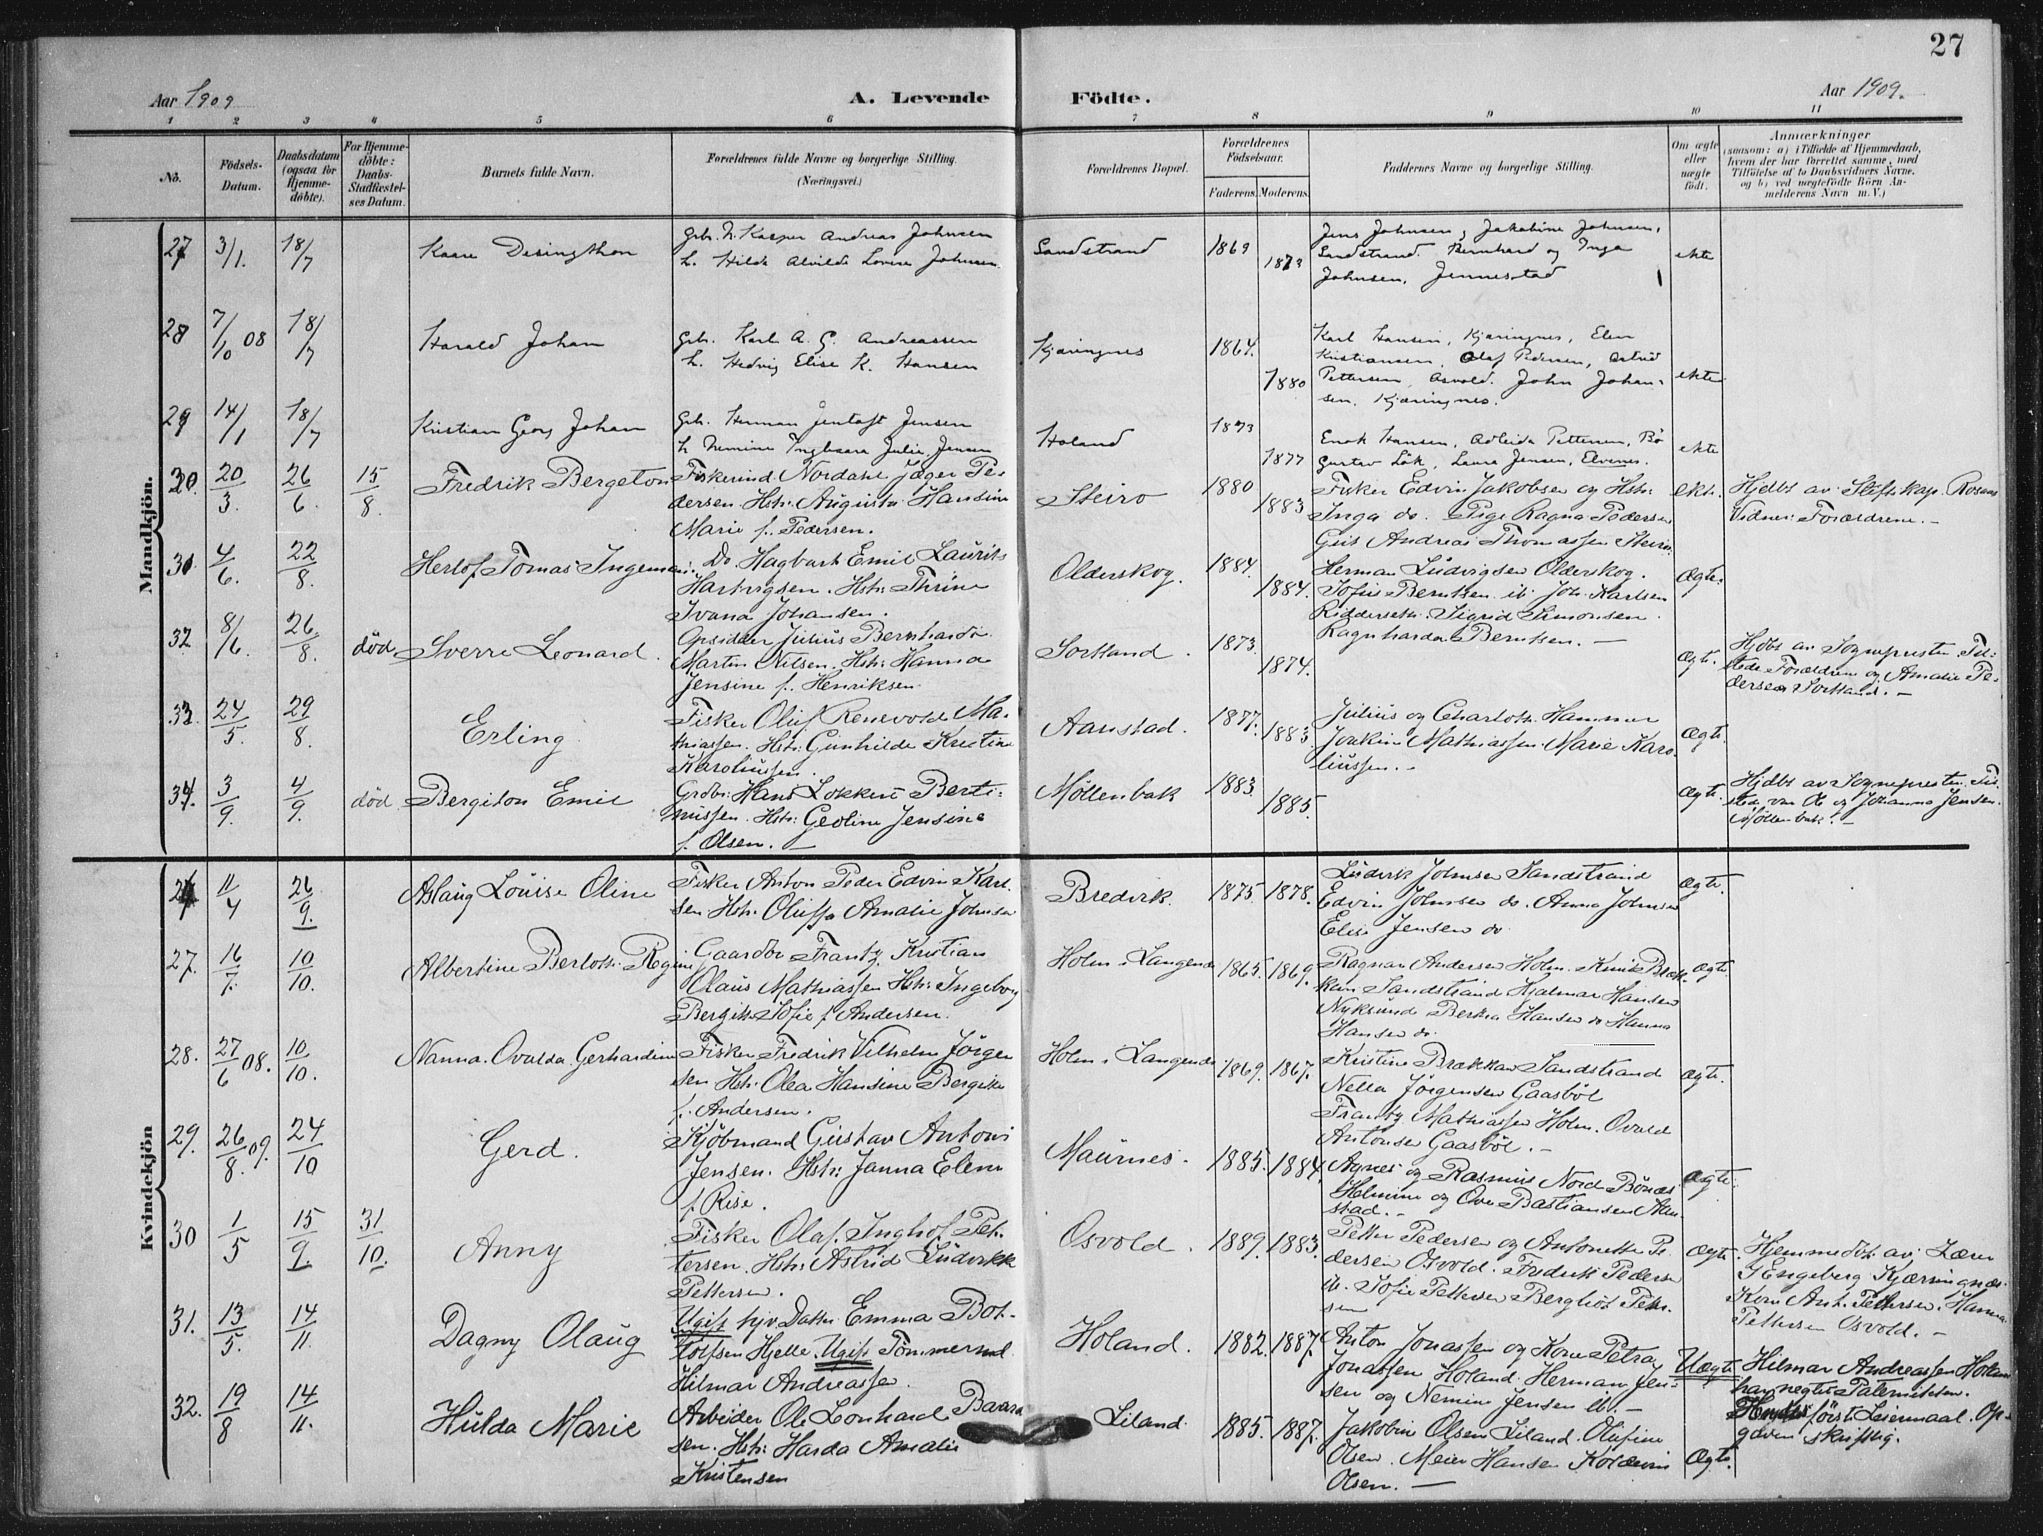 27
Aar 1909
A. Levende Födte.
Aar 1909.
1 2 3 4 5 6 7 8 9 10 11
No.
Födsels-Datum.
Daabsdatum (ogsaa for Hjemme-döbte).
For Hjemme-döbte: Daabs-Stadfæstel-ses Datum.
Barnets fulde Navn.
Forældrenes fulde Navne og borgerlige Stilling.
(Næringsvei.)
Forældrenes Bopæl.
Forældrenes Födselsaar.
Faderens. Moderens.
Faddernes Navne og borgerlige Stilling.
Om ægte eller uægte födt.
Anmærkninger
(saasom: a) i Tilfælde af Hjemmedaab,
hvem der har forrettet samme, med
Tilföielse af to Daabsvidners Navne,
og b) ved uægtefödte Börn An-
melderens Navn m. V.)
Mandkjön.
27 3/1. 18/7 Kaare Desingthon
Grb. N. Kasper Andreas Johnsen
h. Hilda Alvilde Lovise Johnsen
Sandstrand 1869 1873
Jens Johnsen, Jakobine Johnsen,
Sandstrand. Bernhard og Inga
Johnsen, Jennestad
ekte
28 7/10 08 18/7 Harald Johan
Grb. Karl A. G. Andreassen
h. Hedvig Elise K. Hansen
Kjæringnes 1864. 1880
Karl Hansen, Kjæringnes, Elen
Kristiansen, Olaf Pedersen, Astrid
Pettersen, Osvold. John Johan-
sen. Kjæringnes.
ekte
29 14/1 18/7 Kristian Georg Johan
Grb. Herman Jentoft Jensen
h. Nemine Ingebaara Julie Jensen
Holand 1873 1877
Enok Hansen, Adleida Pettersen, Bö
Gustav Lök, Laura Jensen, Elvenes.
ekte
30 20/3 26/6. 15/8. Fredrik Bergeton
Fiskerind. Nordahl Jæger Pe-
dersen. Hstr. Augusta Hansine
Marie f. Pedersen.
Steiro 1880 1883
Fisker Edvin Jakobsen og Hstr.
Inga do. Pige Ragna Pedersen
Gut Andreas Thomassen Steiro
ekt.
Hjdbt av Stiftskap. Rosans
Vidner: Forældrene. -
31 4/6. 22/8. Herlof Tomas Ingeman
Do Hagbart Emil Laurits
Hartvigsen. Hstr. Thrine
Ivana Johansen.
Olderskog. 1884. 1884.
Herman Ludvigsen Olderskog.
Sofus Berntsen ib. Joh. Karlsen
Sigrid Simonsen.
Ragnharda Berntsen. -
Ægte.
32 8/6 26/8. död Sverre Leonard.
Opsidder Julius Bernhard
Martin Nilsen. Hstr. Hanna
Jensine f. Henriksen
Sortland. 1873. 1874.
Ægt.
Hjdbt av Sognepresten Til-
stede Forældrene og Amalie Pe-
dersen Sortland. -
33. 24/5. 29/8. Erling
Fisker Oluf Renevold Ma-
thiassen. Hstr. Gunhilde Kristine
Karoliussen.
Aanstad. 1877. 1883.
Julius og Charlotte Hammer
Joakim Mathiassen. Marie Karo-
liussen. -
Ægt.
34. 3/9. 4/9. död Bergiton Emil
Grdbr. Hans Lökken Berti-
nussen. Hstr. Geoline Jensine
f. Olsen. -
Möllenbak 1883. 1885.
Ægte.
Hjdbt av Sognepresten. Til-
stede var Ole og Johanna Jensen.
Möllenbak. -
Kvindekjön
11/4 26/9. Aslaug Louise Oline
Fisker Anton Peder Edvin Karl-
sen Hstr. Oluffa Amalie Johnsen
Bredvik. 1875 1878.
Ludvik Johnsen Sandstrand
Edvin Johnsen do. Anna Johnsen
Elise Jensen do
Ægte.
27. 16/7. 10/10. Albertine Berlotte Regine
Gaardbr Frantz Kristian
Olaus Mathiassen Hstr. Ingeborg
Bergitte Sofie f. Andersen.
Holm i Langenes 1865. 1869.
Ragnar Andersen Holm. Bræk-
kan Sandstrand Hjalmar Hansen
Nyksund Berkea Hansen do Hanna
Hansen do.
Ægte.
28. 27/6 08. 10/10. Nanna. Ovalda. Gerhardine
Fisker Fredrik Vilhelm Jörgen-
sen Hstr. Olea Hansine Bergitte
f. Andersen.
Holm i Langenes 1869. 1867.
Kristine Brækkan Sandstrand
Nella Jörgensen Gaasböl
Frantz Mathiassen Holm. Ovald
Antonsen Gaasböl. -
Ægte.
29. 26/8. 09. 24/10 Gerd.
Kjöbmand Gustav Antoni
Jensen. Hstr. Janna Eline
f. Rise.
Maurnes. 1885. 1884.
Agnes og Rasmus Nord Bönes
Helmine og Ove Bastiansen Aan-
stad. -
Ægte.
30 1/5 15/9. 31/10. Anny
Fisker Olaf Inghof Pet-
tersen. Hstr. Astrid Ludvikke
Pettersen.
Osvold. 1889. 1883.
Petter Pedersen og Antonette Pe-
dersen Osvold. Fredrik Pedersen
ib. Sofie Pettersen Berghot Petter-
sen
Ægte.
Hjemmedöbt av Lærer
J Engeberg Kjæringnes.
Korn. Ant. Pettersen. Hanna
Pettersen Osvold. -
31. 13/5. 14/11. Dagny Olaug
Ugift tjv. Datter Emma Bot-
tolfsen Hjelle. Ugift Tömmermd.
Hilmar Andreassen.
Holand. 1882. 1887.
Anton Jonassen og Korn. Petra
Jonassen Holand. Herman Jen-
sen og Nemine Jensen ib. -
Uægte
Hilmar Andreassen Holand
har negtet Paterniteten.
först Leiermaal. Op-
gaven skriftlig.
32. 19/8 14/11. Hulda Marie
Arbeider Ole Leonhard Baard-
sen. Hstr. Harda Amalie
Kristensen
Liland. 1885. 1887.
Jakobine Olsen Liland. Olufine
Olsen. Meier Hansen Koldevin
Olsen. -
Ægte.